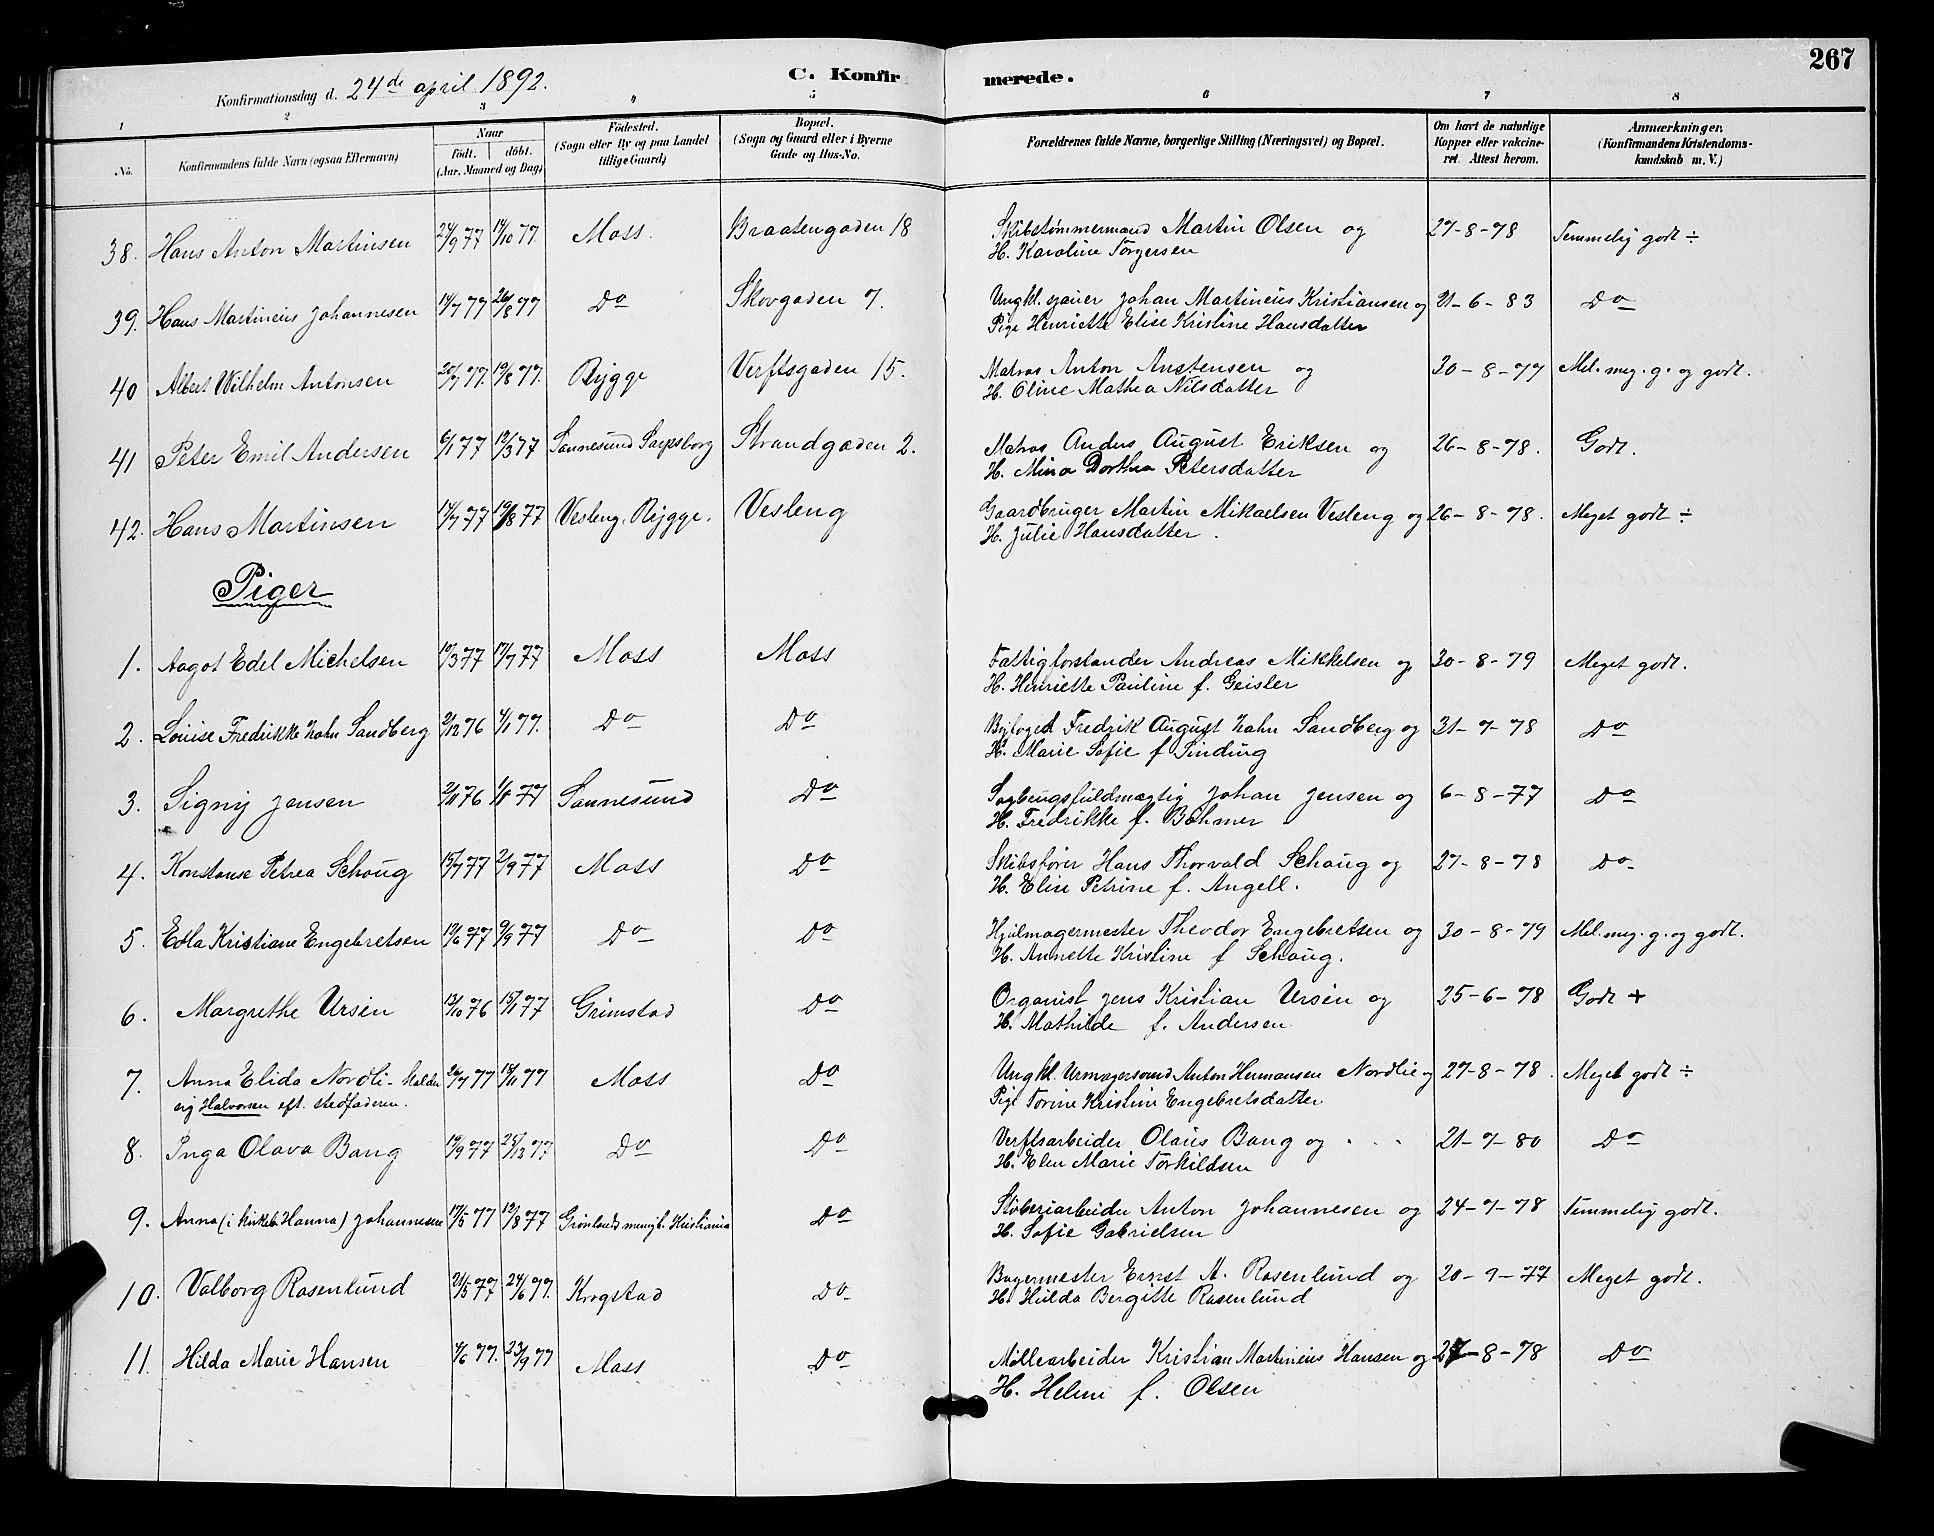 267
C. Konfirmerede.
Konfirmationsdag d. 24de april 1892.
1 2 3 4 5 6 7 8
No. Konfirmandens fulde Navn (ogsaa Efternavn) Naar Födt. döbt. (Aar, Maaned og Dag) Födested. (Sogn eller By og paa Landet tillige Gaard) Bopæl. (Sogn og Gaard eller i Byerne Gade og Hus-No. Forældrenes fulde Navne, borgerlige Stilling (Næringsvei) og Bopæl. Om havt de naturlige Kopper eller vakcineret. Attest herom. Anmærkninger. (Konfirmandens Kristendomskundskab m. V.)
38. Hans Anton Martinsen 24/9 77 14/10 77. Moss. Braatengaden 18 Skibstømmermand Martin Olsen og 27-8-78 Temmelig godt ÷
H. Karoline Torgersen
39. Hans Martinius Johannesen 14/7 77 26/8 77 Do Skovgaden 7. Ungkl. Johan Martinius Kristiansen og 21-6-83 Do
Pige Henriette Elise Kristine Hansdatter
40 Albert Wilhelm Antonsen 20/7 77. 19/8 77. Rygge Verftsgaden 15. Matros Anton Anstensen og 30-8-79 Mel. meg. g. og godt.
H. Oline Mathea Nilsdatter
41 Peter Emil Andersen 6/1 77 19/3 77 Sannesund Sarpsborg Strandgaden 2. Matros Anders August Eriksen og 26-8-78. Godt.
H. Mina Dorthea Petersdatter
42. Hans Martinsen 17/7 77 19/8 77 Vesleng. Rygge. Vesleng Gaardbruger Martin Mikaelsen Vesleng og 26-8-78. Meget godt ÷
H. Julie Hansdatter.
Piger
1. Aagot Edel Michelsen 19/3 77 17/7 77 Moss Moss Fattigforstander Andreas Mikkelsen og 30-8-79 Meget godt.
H. Henriette Pauline f. Geisler
2. Louise Fredrikke Zahn Sandberg 2/12 76 4/1 77. Do Do Byfoged Fredrik August Zahn Sandberg og 31-7-78 Do
H. Marie Sofie f Sinding
3. Signy Jensen 2/11 76 77 Sannesund Do Sagbrugsfuldmægtig Johan Jensen og 6-8-77 Do
H. Fredrikke f. Böhmer
4. Konstanse Petrea Schoug 15/7 77 2/9 77 Moss Do Skibsfører Hans Thorvald Schoug og 27-8-78 Do
H. Elise Petrine f. Angell.
5. Edla Kristiane Engebretsen 19/6 77 9/9 77 Do Do Hjulmagermester Theodor Engebretsen og 30-8-79 Mel. meg. g. og godt.
H. Annette Kristine f Schoug.
6. Margrethe Ursin 13/10 76 15/1 77 Grimstad Do Organist Jens Kristian Ursin og 25-6-78 Godt +
H. Mathilde f. Andersen
7. Anna Elida Nordli - kalder 20/7 77 18/11 77 Moss Do Ungkl. Urmagersvend Anton Hermansen Nordlie og 27-8-78. Meget godt ÷
sig Halvorsen eft. stedfaderen. Pige Torine Kristine Engebretsdatter
8. Inga Olava Bang 19/9 77 25/12 77 Do Do Verftsarbeider Olaus Bang og 21-7-80 Do
H. Elen Marie Torkildsen
9. Anna (i kirkeb. Hanna) Johannesen 17/5 77 12/8 77 Grønlands menigh. Kristiania Do Støberiarbeider Anton Johannesen og 24-7-78 Temmelig godt.
H. Sofie Gabrielsen
10. Valborg Rosenlund 21/5 77 24/6 77. Krogstad Do Bagermester Ernst A. Rosenlund og 20-9-77 Meget godt.
H. Hulda Bergitte Rosenlund
11. Hilda Marie Hansen 4/6 77. 23/9 77 Moss Do Møllearbeider Kristian Martinius Hansen og 27-8-78 Do
H. Helene f. Olsen